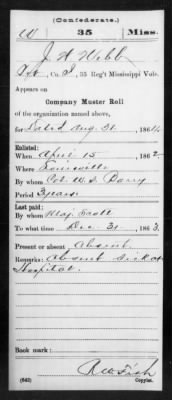 (Confederate.)
W 35 Miss.
J. A. Webb
Co. I, 35 Reg't Mississippi Vols.
Appears on
Company Muster Roll
of the organization named above,
for Dated Aug. 31, 1864.
Enlisted:
When April 15, 1862.
Where Louisville
By whom Col. W. S. Barry
Period 3 years
Last paid:
By whom Maj. Scott
To what time Dec 31, 1863.
Present or absent Absent
Remarks: Absent sick at
Hospital.
Book mark:
(642) Copyist.